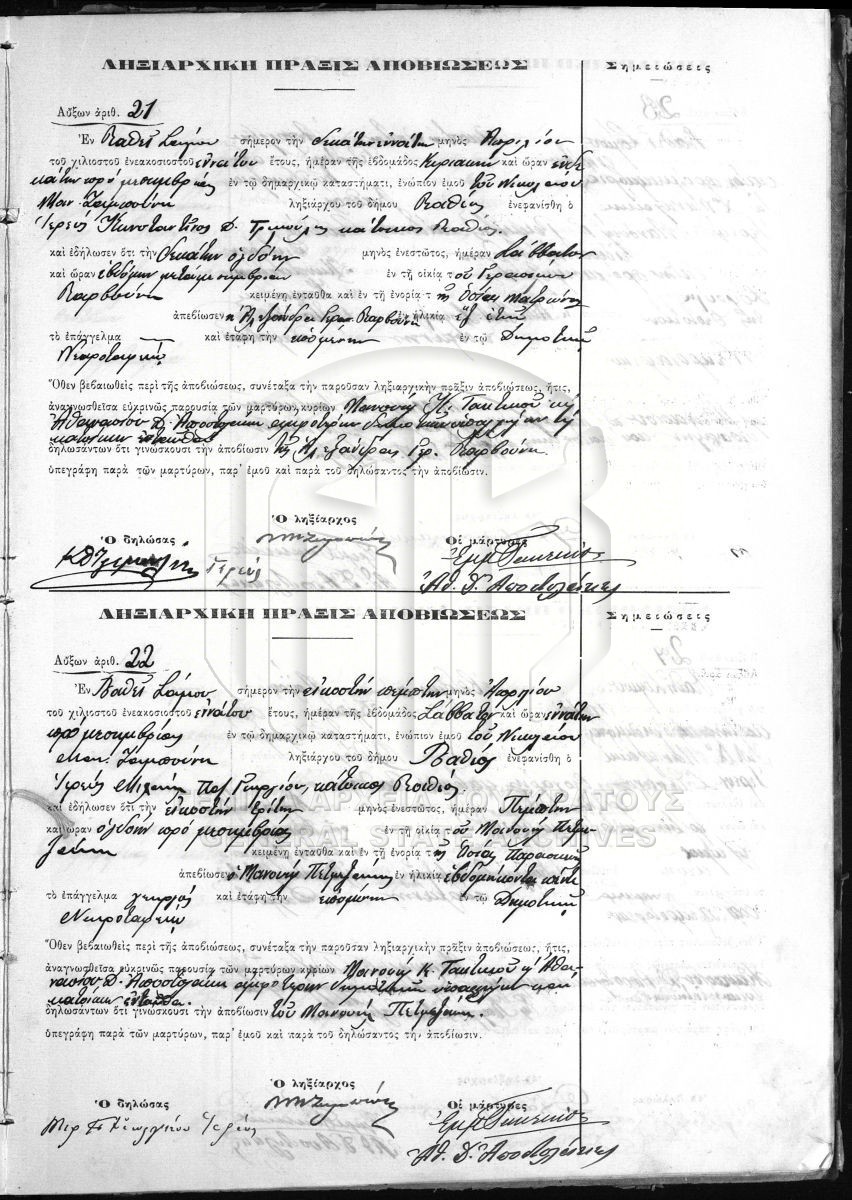 ΛΗΞΙΑΡΧΙΚΗ ΠΡΑΞΙΣ ΑΠΟΒΙΩΣΕΩΣ
Σημειώσεις
Αὔξων ἀριθ. 21
Ἐν Βαθεῖ Σάμου σήμερον τὴν δεκάτην ἐννάτην μηνὸς Ἀπριλίου
τοῦ χιλιοστοῦ ἐνεακοσιοστοῦ ἐννάτου ἔτους, ἡμέραν τῆς ἑβδομάδος Κυριακὴν καὶ ὥραν ἑνδε
κάτην πρὸ μεσημβρίας ἐν τῷ δημαρχικῷ καταστήματι, ἐνώπιον ἐμοῦ τοῦ Νικολάου
Μαν. ληξιάρχου τοῦ δήμου Βαθέος ἐνεφανίσθη ὁ
Ἱερεὺς Κωνσταντῖνος Δ. κάτοικος Βαθέος
καὶ ἐδήλωσεν ὅτι τὴν δεκάτην ὀγδόην μηνὸς ἐνεστῶτος, ἡμέραν Σάββατον
καὶ ὥραν ἑβδόμην μετὰ μεσημβρίαν ἐν τῇ οἰκίᾳ τοῦ Γερασίμου
Βαρβούνη κειμένῃ ἐνταῦθα καὶ ἐν τῇ ἐνορίᾳ τῆς Ὁσίας Ματρώνης
ἀπεβίωσεν ἡ Ἀλεξάνδρα Γερ. Βαρβούνη ἐν ἡλικίᾳ ἓξ ἐτῶν
τὸ ἐπάγγελμα — καὶ ἐτάφη τὴν ἑπομένην ἐν τῷ Δημοτικῷ
Νεκροταφείῳ
Ὅθεν βεβαιωθεὶς περὶ τῆς ἀποβιώσεως, συνέταξα τὴν παροῦσαν ληξιαρχικὴν πρᾶξιν ἀποβιώσεως, ἥτις,
ἀναγνωσθεῖσα εὐκρινῶς παρουσίᾳ τῶν μαρτύρων κυρίων Μανουὴλ Κ. Τακτικοῦ καὶ
Ἀθανασίου Δ. Ἀποστολάκη ἀμφοτέρων
κατοίκων ἐνταῦθα
δηλωσάντων ὅτι γινώσκουσι τὴν ἀποβίωσιν τῆς Ἀλεξάνδρας Γερ. Βαρβούνη
ὑπεγράφη παρὰ τῶν μαρτύρων, παρ' ἐμοῦ καὶ παρὰ τοῦ δηλώσαντος τὴν ἀποβίωσιν.
Ὁ ληξίαρχος
Ὁ δηλώσας
Οἱ μάρτυρες
Ἱερεύς
Ἐμμ Τακτικός
Ἀθ. Δ. Ἀποστολάκης
ΛΗΞΙΑΡΧΙΚΗ ΠΡΑΞΙΣ ΑΠΟΒΙΩΣΕΩΣ
Σημειώσεις
Αὔξων ἀριθ. 22
Ἐν Βαθεῖ Σάμου σήμερον τὴν εἰκοστὴν πέμπτην μηνὸς Ἀπριλίου
τοῦ χιλιοστοῦ ἐνεακοσιοστοῦ ἐννάτου ἔτους, ἡμέραν τῆς ἑβδομάδος Σάββατον καὶ ὥραν ἐννάτην
πρὸ μεσημβρίας ἐν τῷ δημαρχικῷ καταστήματι, ἐνώπιον ἐμοῦ τοῦ Νικολάου
Μαν. ληξιάρχου τοῦ δήμου Βαθέος ἐνεφανίσθη ὁ
Ἱερεὺς Μιχαὴλ Γεωργίου, κάτοικος Βαθέος
καὶ ἐδήλωσεν ὅτι τὴν εἰκοστὴν τρίτην μηνὸς ἐνεστῶτος, ἡμέραν Πέμπτην
καὶ ὥραν ὀγδόην πρὸ μεσημβρίας ἐν τῇ οἰκίᾳ τοῦ Μανουὴλ
κειμένῃ ἐνταῦθα καὶ ἐν τῇ ἐνορίᾳ τῆς Ὁσίας Παρασκευῆς
ἀπεβίωσεν ὁ Μανουὴλ ἐν ἡλικίᾳ ἑβδομήκοντα πέντε
τὸ ἐπάγγελμα γεωργὸς καὶ ἐτάφη τὴν ἑπομένην ἐν τῷ Δημοτικῷ
Νεκροταφείῳ
Ὅθεν βεβαιωθεὶς περὶ τῆς ἀποβιώσεως, συνέταξα τὴν παροῦσαν ληξιαρχικὴν πρᾶξιν ἀποβιώσεως, ἥτις,
ἀναγνωσθεῖσα εὐκρινῶς παρουσίᾳ τῶν μαρτύρων κυρίων Μανουὴλ Κ. Τακτικοῦ καὶ Ἀθα
νασίου Δ. Ἀποστολάκη ἀμφοτέρων
κατοίκων ἐνταῦθα.
δηλωσάντων ὅτι γινώσκουσι τὴν ἀποβίωσιν τοῦ Μανουὴλ
ὑπεγράφη παρὰ τῶν μαρτύρων, παρ' ἐμοῦ καὶ παρὰ τοῦ δηλώσαντος τὴν ἀποβίωσιν.
Ὁ ληξίαρχος
Ὁ δηλώσας
Οἱ μάρτυρες
Γεωργίου Ἱερεύς
Ἐμμ Τακτικός
Ἀθ. Δ. Ἀποστολάκης
GENERAL STATE ARCHIVES